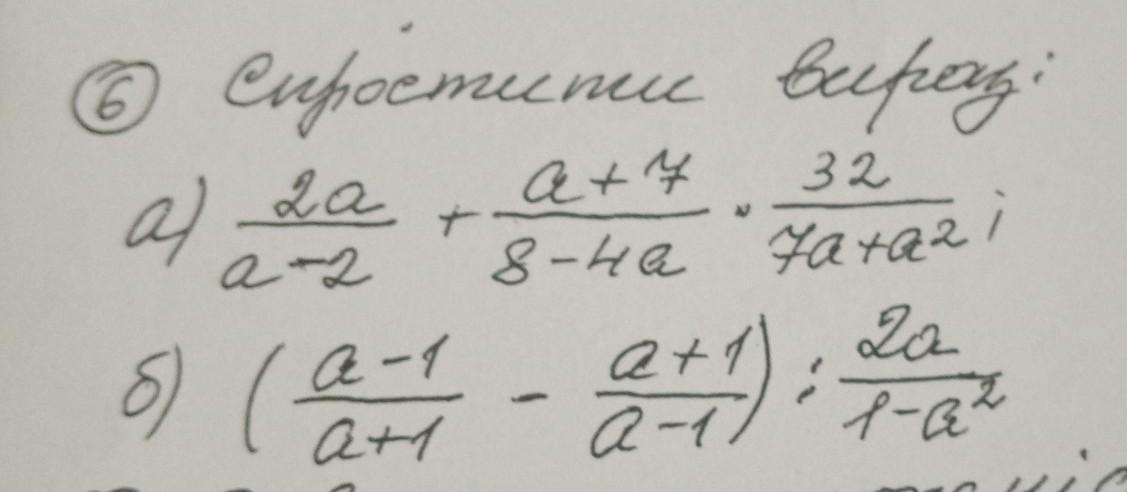 ⑥ Спростити вираз:
а) \frac{2a}{a-2} + \frac{a+7}{8-4a} \cdot \frac{32}{7a+a^2};
б) \left(\frac{a-1}{a+1} - \frac{a+1}{a-1}\right) : \frac{2a}{1-a^2}